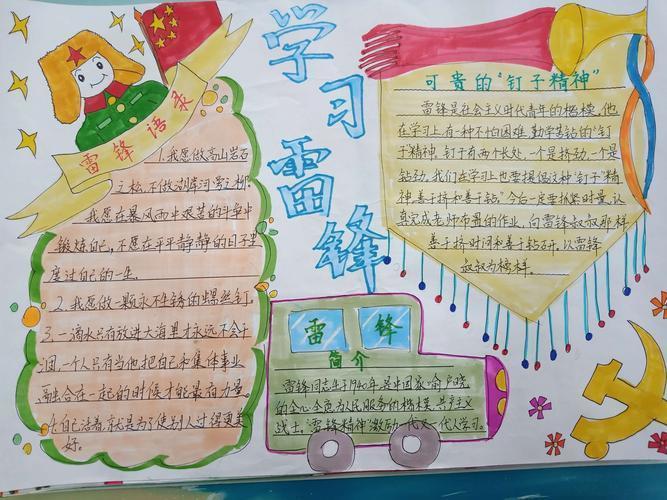 学习雷锋
雷锋语录
1.我愿做高山岩石
之松,不做湖岸河旁之柳.
我愿在暴风雨中艰苦的斗争中
锻炼自己,不愿在平平静静的日子里
度过自己的一生.
2.我愿做一颗永不生锈的螺丝钉.
3.一滴水只有放进大海里才永远不会干
涸,一个人只有当他把自己和集体事业
融合在一起的时候才能最有力量.
活着,就是为了使别人过得更美
好.
可贵的"钉子精神"
雷锋是社会主义时代青年的楷模,他
在学习上有一种不怕困难,勤学苦钻的"钉
子"精神,钉子有两个长处,一个是挤劲,一个是
钻劲,我们在学习上也要提倡这种"钉子"精
神,善于挤和善于钻."今后一定要抓紧时量,认
真完成老师布置的作业,向雷锋叔叔那样
善于挤时间和善于钻研,以雷锋
叔叔为榜样。
雷锋
简介
雷锋同志生于1940年,是中国家喻户晓
的全心全意为人民服务的楷模,共产主义
战士,"雷锋精神"激励一代又一代人学习。